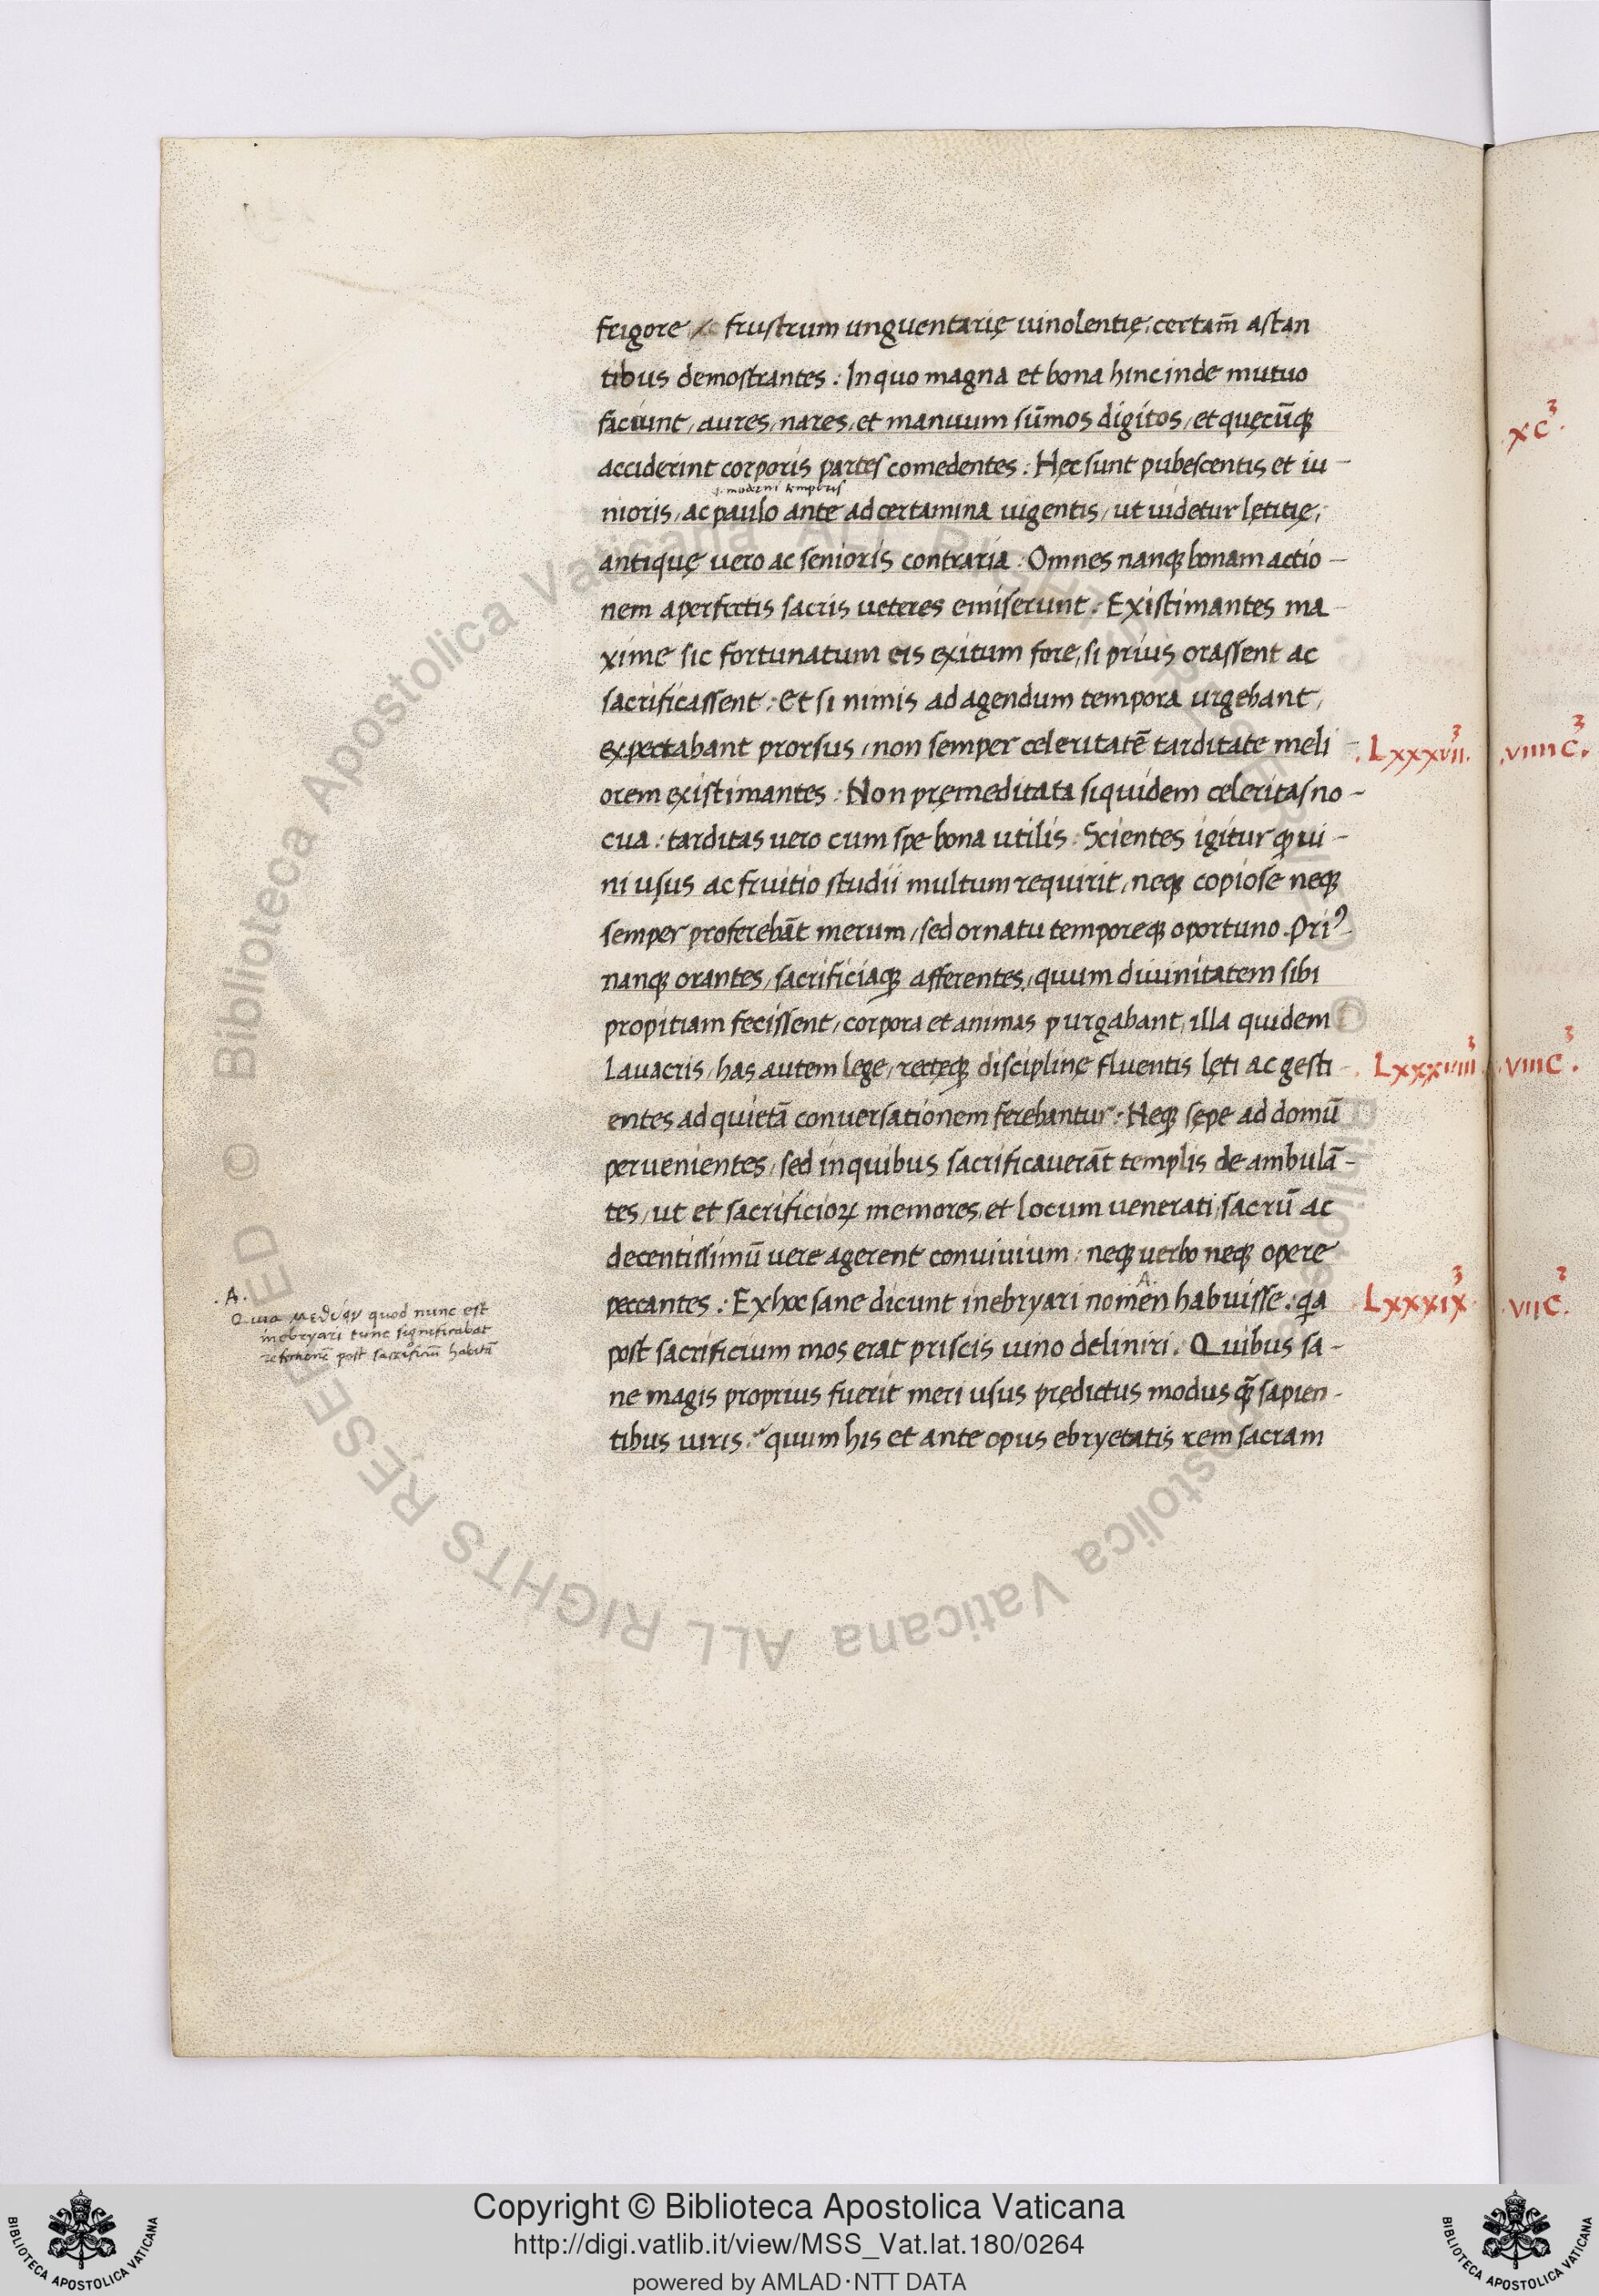 frigore frustrum unguentarię uinolentię, certam̄ astan
tibus demostrantes : In quo magna et bona hinc inde mutuo
faciunt, aures, nares, et manuum sūmos digitos, et quęcūq;
acciderint corporis partes comedentes : Hęc sunt pubescentis et iu-
.i. moderni temporis
nioris, ac paulo ante ad certamina uigentis, ut uidetur lętitię,
antiquę uero ac senioris contraria : Omnes nanq; bonam actio-
nem a perfectis sacris ueteres emiserunt : Existimantes ma-
xime sic fortunatum eis exitum fore, si prius orassent ac
sacrificassent : Et si nimis ad agendum tempora urgebant,
expectabant prorsus, non semper celeritatē tarditate meli-
.Lxxxvii.3
orem existimantes : Non pręmeditata siquidem celeritas no-
cua : tarditas uero cum spe bona utilis : Scientes igitur ꝙ ui-
ni usus ac fruitio studii multum requirit, neq; copiose neq;
semper proferebāt merum, sed ornatu temporeq; oportuno. Pri9
nanq; orantes, sacrificiaq; afferentes, quum diuinitatem sibi
propitiam fecissent, corpora et animas purgabant, illa quidem
Lauacris, has autem lege, rectęq; disciplinę fluentis lęti ac gesti-
.Lxxxviii3
entes ad quietā conuersationem ferebantur : Neq; sępe ad domū
peruenientes, sed in quibus sacrificauerāt templis deambulā-
tes, ut et sacrificioꝝ memores, et locum uenerati, sacrū ac
decentissimū uere agerent conuiuium : neq; uerbo neq; opere
.A.
peccantes : Ex hoc sane dicunt inebryari nomen habuisse : qa
Lxxxix3
post sacrificium mos erat priscis uino deliniri. Quibus sa-
ne magis proprius fuerit meri usus prędictus modus q̄ sapien-
tibus uiris : quum his et ante opus ebryetatis rem sacram
.A.
Quia μεθύειν quod nunc est
inebryari tunc significabat
refectionē post sacrificiū habitā
.xc3.
.viiiic3.
.viiic3.
.viic3.
© Biblioteca Apostolica Vaticana ALL RIGHTS RESERVED
© Biblioteca Apostolica Vaticana ALL RIGHTS RESERVED
Copyright © Biblioteca Apostolica Vaticana
http://digi.vatlib.it/view/MSS_Vat.lat.180/0264
powered by AMLAD·NTT DATA
BIBLIOTECA APOSTOLICA VATICANA
BIBLIOTECA APOSTOLICA VATICANA